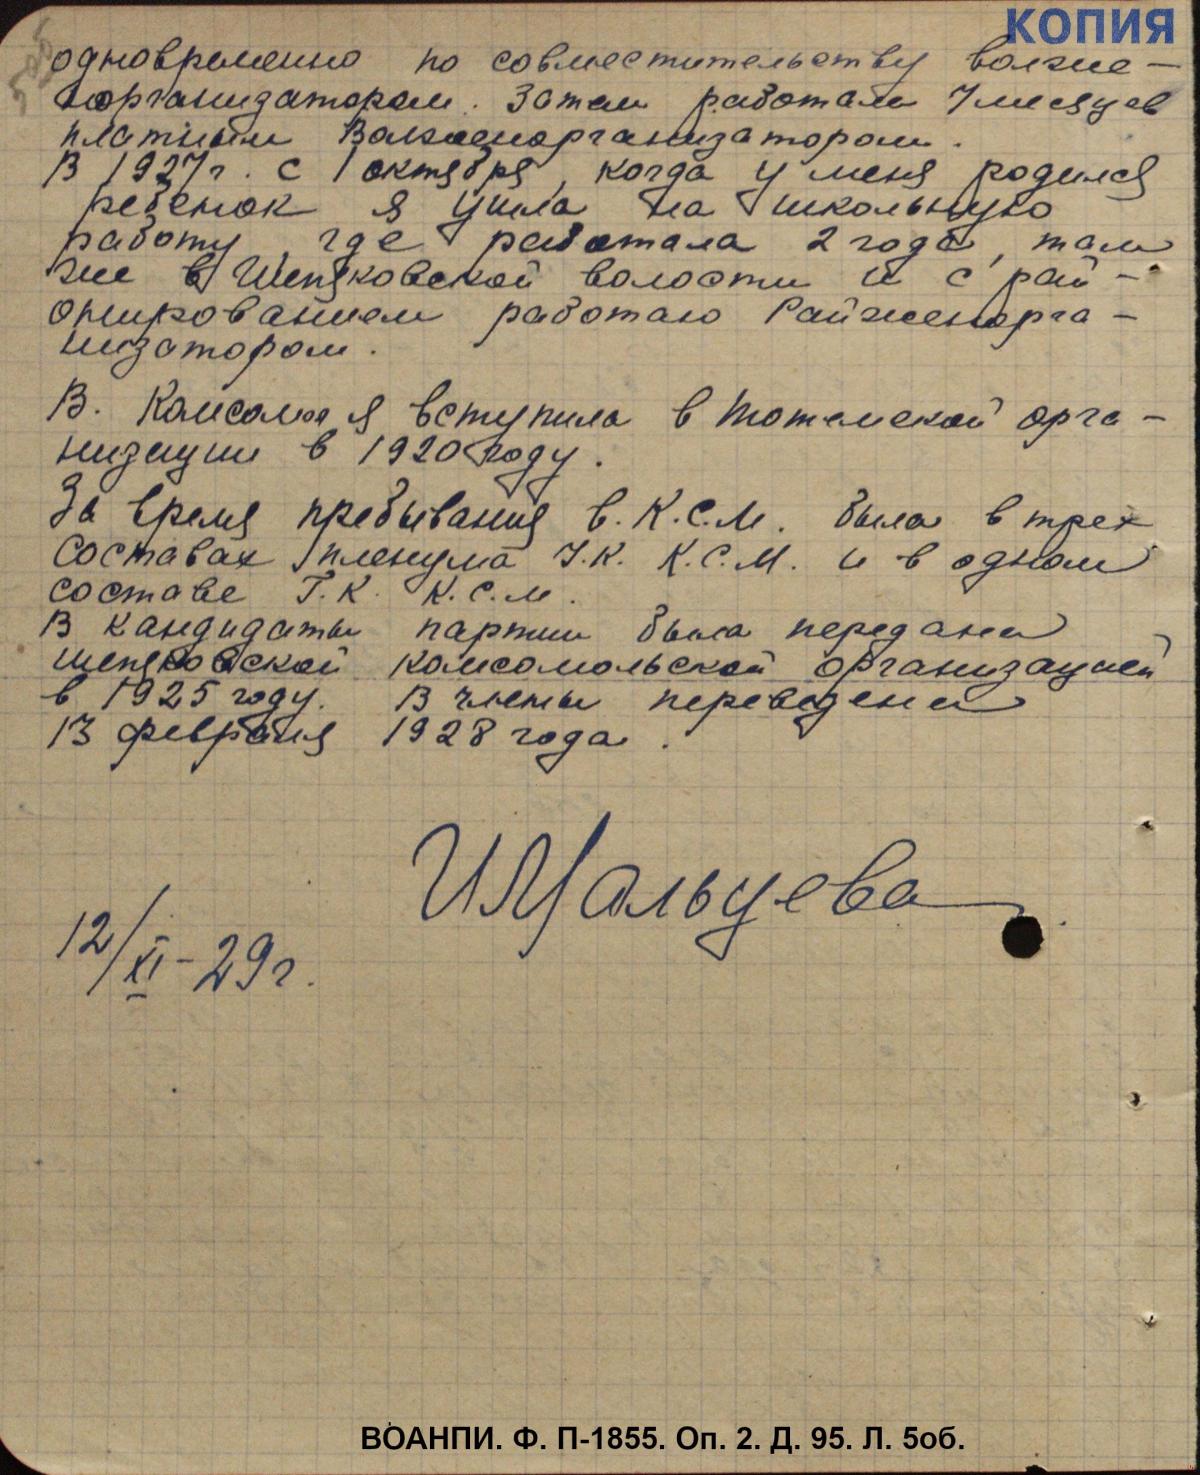 КОПИЯ
одновременно по совместительству волже-
норганизатором. Затем работала 7 месяцев
платным Волженорганизатором.
В 1927 г. с 1 октября, когда у меня родился
ребенок я ушла на школьную
работу, где работала 2 года, там
же в Шепяковской волости и с рай-
онированием работаю Райженорга-
низатором.
В. Комсомол я вступила в Тотемской орга-
низации в 1920 году.
За время пребывания в. К.С.М. была в трех
составах пленума У.К. К.С.М. и в одном
составе Г.К. К.С.М.
В кандидаты партии была передана
шепяковской комсомольской организацией
в 1925 году. В члены переведена
13 февраля 1928 года.
И Мальцева
12/XI-29 г.
ВОАНПИ. Ф. П-1855. Оп. 2. Д. 95. Л. 5об.